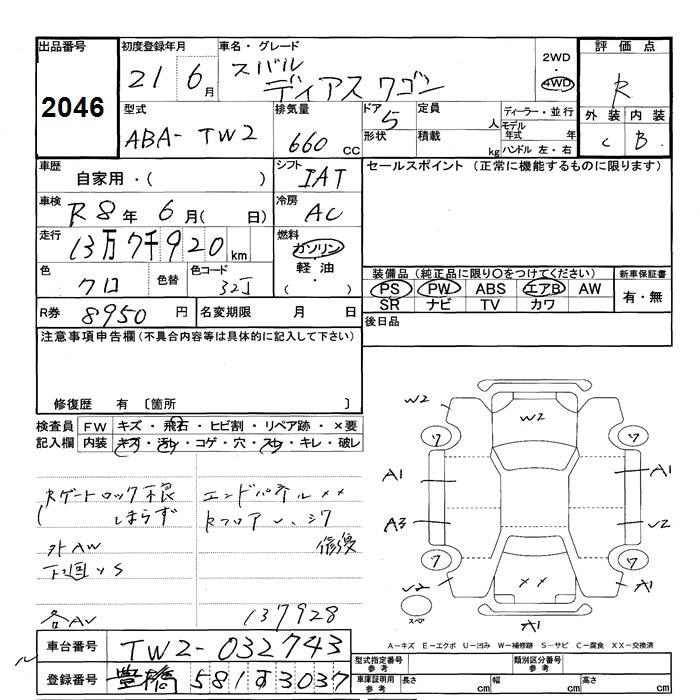 出品番号
2046
初度登録年月
21 6月
車名・グレード
スバル
ディアスワゴン
2WD
・
4WD
評価点
R
外装 内装
C B
型式
ABA-TW2
排気量
660 cc
ドア 5
形状
定員 人
積載 kg
ディーラー・並行
モデル年式 年
ハンドル 左・右
車歴
自家用・( )
シフト
IAT
セールスポイント (正常に機能するものに限ります)
車検
R8年 6月( 日)
冷房
AC
走行
13万7千920km
燃料
ガソリン
軽油
( ・ )
色
クロ
色替
色コード
32J
装備品 (純正品に限り〇をつけてください)
PS PW ABS エアB AW
SR ナビ TV カワ
新車保証書
有・無
R券 8950円
名変期限 月 日
後日品
注意事項申告欄(不具合内容等は具体的に記入して下さい)
修復歴 有 〔箇所 〕
検査員記入欄
FW キズ・飛石・ヒビ割・リペア跡・×要
内装 キズ・汚レ・コゲ・穴・スレ・キレ・破レ
Rゲートロック不良
しまらず
外AW
下廻りS
各AV
エンドパネル××
Rフロア
修復
137928
W2
W2
ワ
ワ
A1
A1
A3
U2
ワ
ワ
U2
××
A1
スペア
A1
A-キズ E-エクボ U-凹み W-補修跡 S-サビ C-腐食 XX-交換済
車台番号 TW2-032743
登録番号 豊橋 581す3037
型式指定番号 参考
類別区分番号 参考
車庫証明用 参考
長さ cm
幅 cm
高さ cm